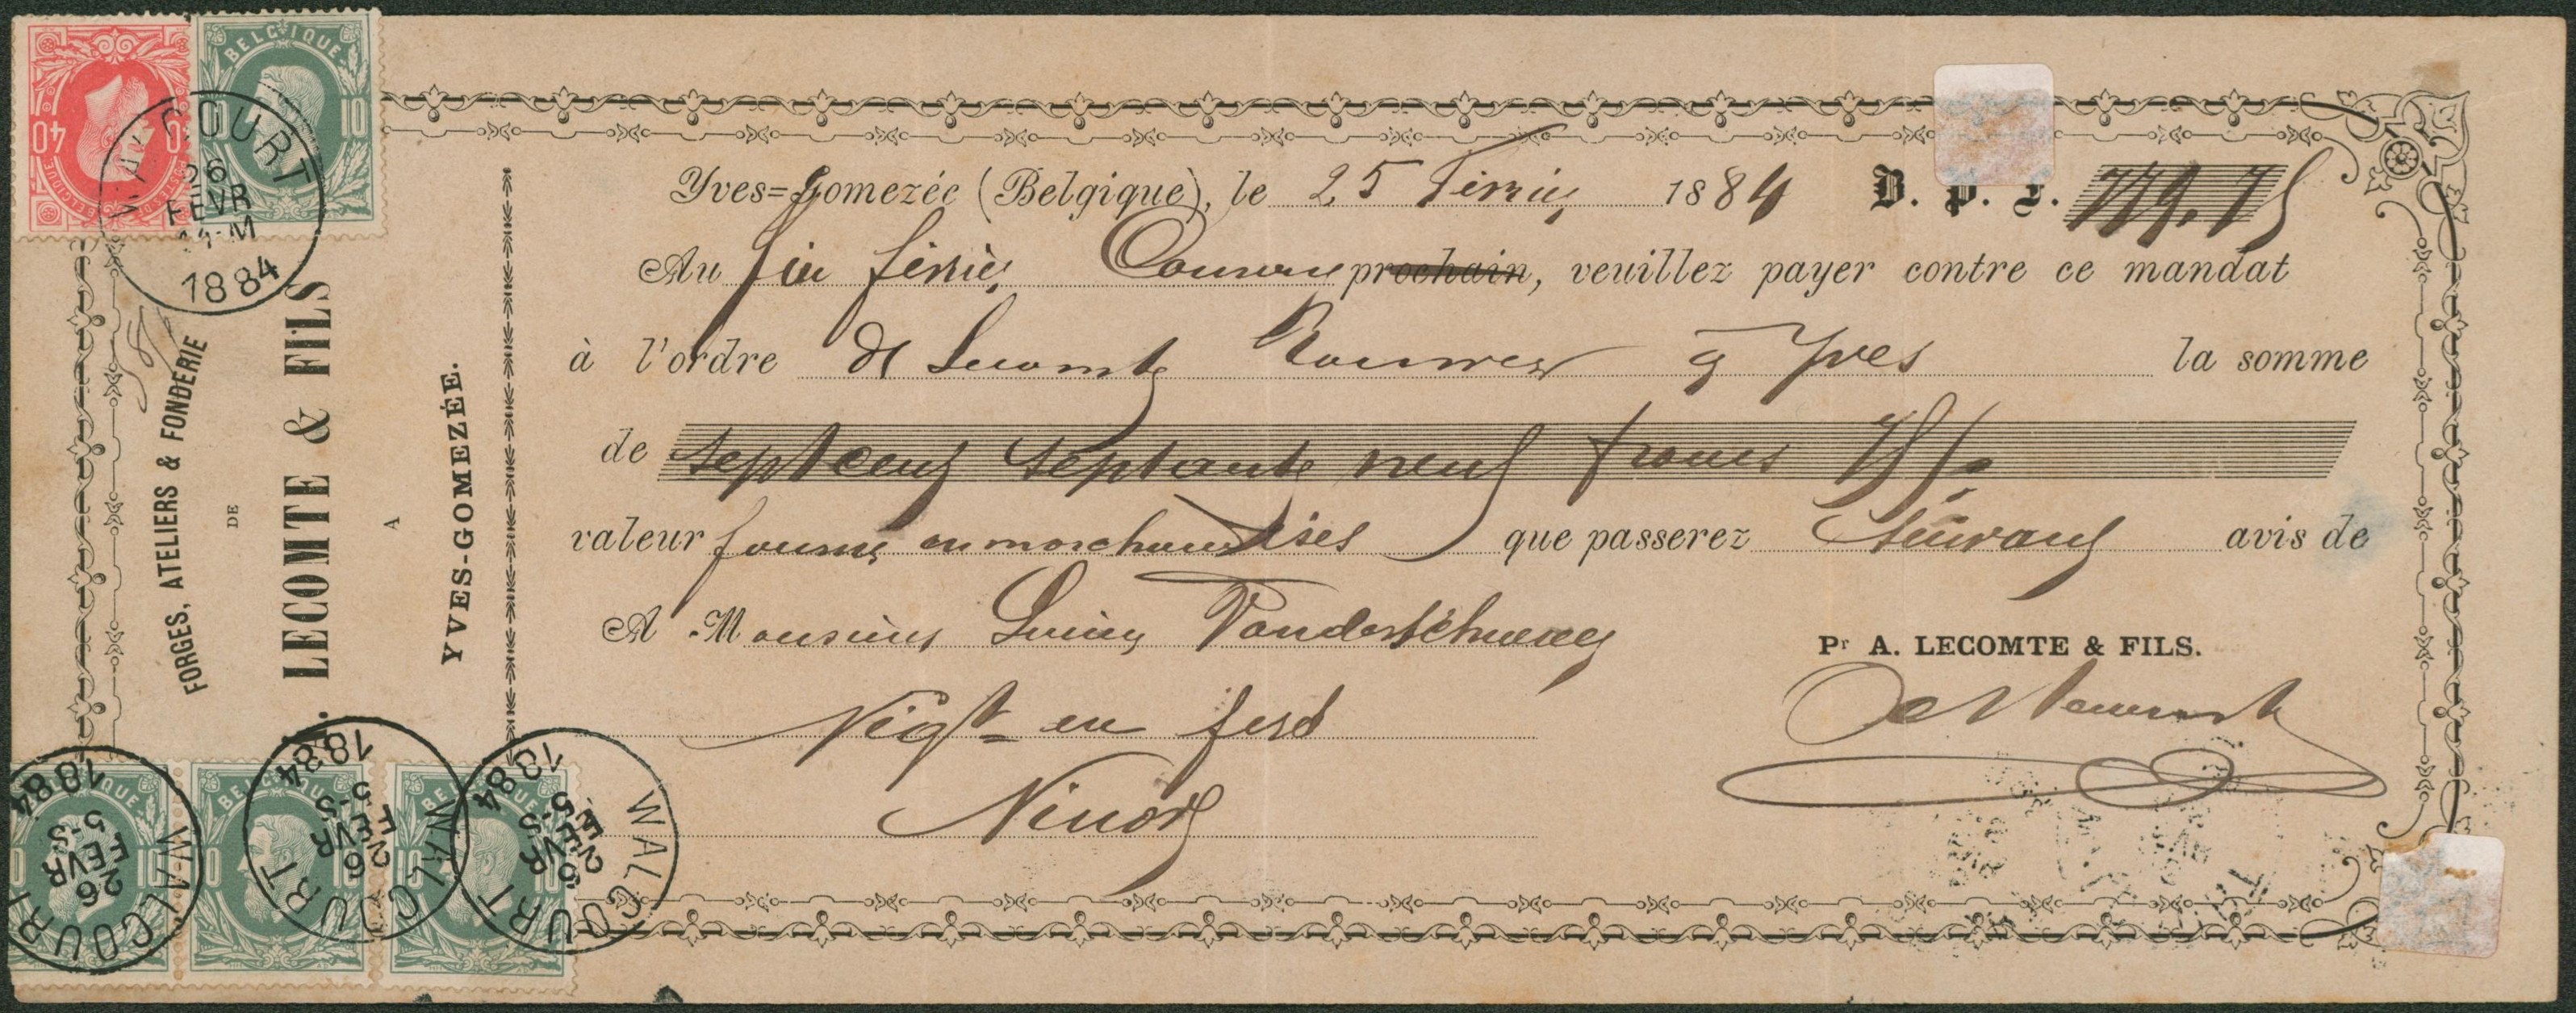 BELGIQUE
10
40
POSTES BELGIQUE
WALCOURT
26
FÉVR
11-M
1884
FORGES, ATELIERS & FONDERIE
DE
LECOMTE & FILS
A
YVES-GOMEZÉE.
Yves=Gomezée (Belgique), le 25 Février 1884 B. P. F. 779.75
Au fin février Courant prochain, veuillez payer contre ce mandat
à l'ordre de Lecomte à Yves la somme
de Sept cent septante neuf francs 75
valeur fournie en marchandises que passerez suivant avis de
A Monsieur
Pr A. LECOMTE & FILS.
Négt en fers
Ninove
BELGIQUE
10
WALCOURT
26
FEVR
5-S
1884
BELGIQUE
10
WALCOURT
26
FEVR
5-S
1884
BELGIQUE
10
WALCOURT
26
FEVR
5-S
1884